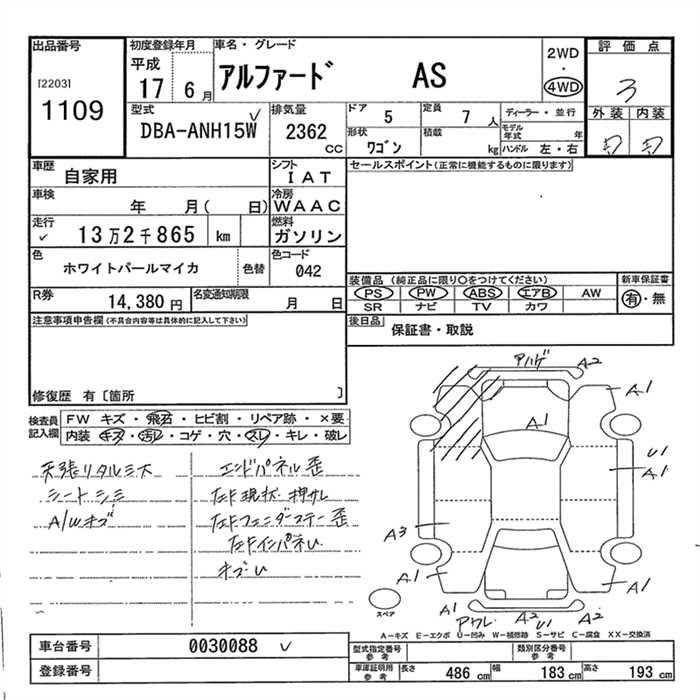 出品番号
[2203]
1109
初度登録年月
平成
17 6 月
車名・グレード
アルファード AS
2WD
・
4WD
評価点
3
外装 内装
型式
DBA-ANH15W
排気量
2362
CC
ドア
5
定員
7 人
ディーラー・並行
形状
ワゴン
積載
kg
モデル年式
年
ハンドル 左・右
車歴
自家用
シフト
IAT
車検
年 月( 日)
冷房
WAAC
走行
13万2千865 km
燃料
ガソリン
色
ホワイトパールマイカ
色替
色コード
042
R券
14,380 円
名変通知期限
月 日
セールスポイント(正常に機能するものに限ります)
装備品 (純正品に限り○をつけてください)
PS PW ABS エアB AW
SR ナビ TV カワ
新車保証書
有・無
後日品
保証書・取説
注意事項申告欄(不具合内容等は具体的に記入して下さい)
修復歴 有〔箇所 〕
検査員記入欄
FW キズ・飛石・ヒビ割・リペア跡・×要
内装 キズ・汚レ・コゲ・穴・スレ・キレ・破レ
シートシミ
A/Wキズ
エンドパネル歪
アハゲ
A2
A1
A1
U1
A1
A3
A1
A1
A1
A2
U1
A2
スペア
A-キズ E-エクボ U-凹み W-補修跡 S-サビ C-腐食 XX-交換済
車台番号
0030088
登録番号
型式指定番号
参考
類別区分番号
参考
車庫証明用
参考
長さ 486 cm
幅 183 cm
高さ 193 cm